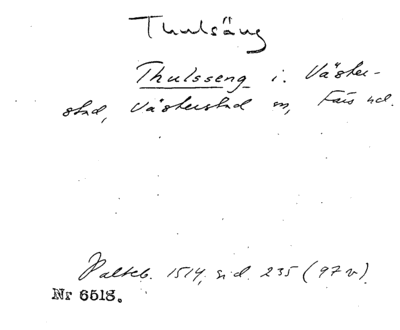 Thulsäng
Thulsseng i. Väster-
stad, Västerstad sn, Färs hd.
Palteb. 1514, sid. 235 (97 v).
Nr 6518.